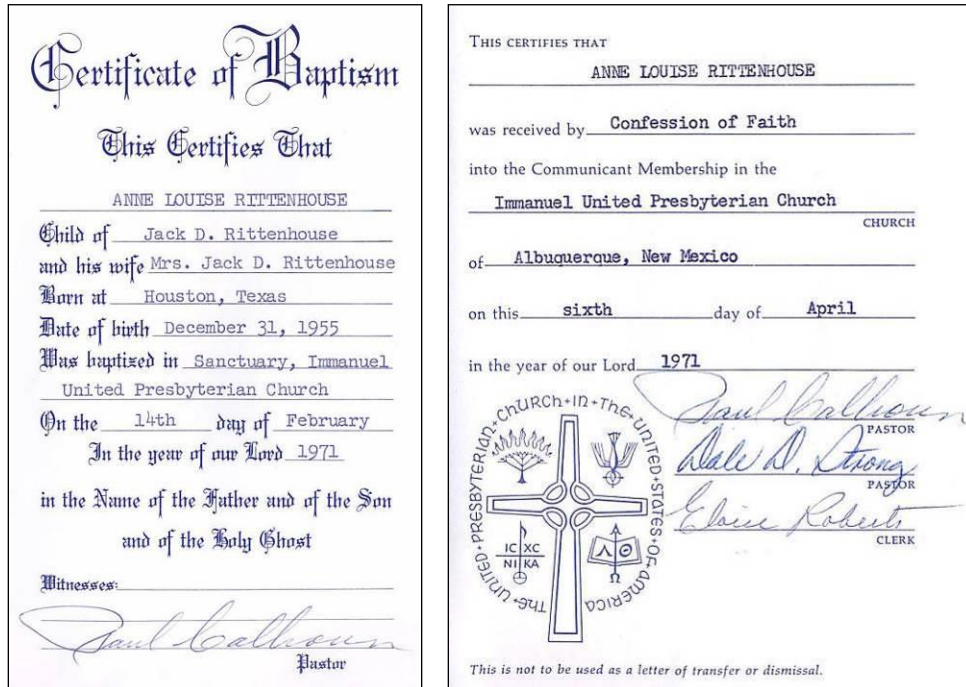 Certificate of Baptism
This Certifies That
ANNE LOUISE RITTENHOUSE
Child of Jack D. Rittenhouse
and his wife Mrs. Jack D. Rittenhouse
Born at Houston, Texas
Date of birth December 31, 1955
Was baptized in Sanctuary, Immanuel
United Presbyterian Church
On the 14th day of February
In the year of our Lord 1971
in the Name of the Father and of the Son
and of the Holy Ghost
Witnesses:
Paul Calhoun
Pastor
THIS CERTIFIES THAT
ANNE LOUISE RITTENHOUSE
was received by Confession of Faith
into the Communicant Membership in the
Immanuel United Presbyterian Church
CHURCH
of Albuquerque, New Mexico
on this sixth day of April
in the year of our Lord 1971
Paul Calhoun
PASTOR
Dale D. Strong
PASTOR
Eloise Roberts
CLERK
THE+UNITED+PRESBYTERIAN+CHURCH+IN+THE+UNITED+STATES+OF+AMERICA
IC XC
NI KA
Λ Θ
This is not to be used as a letter of transfer or dismissal.